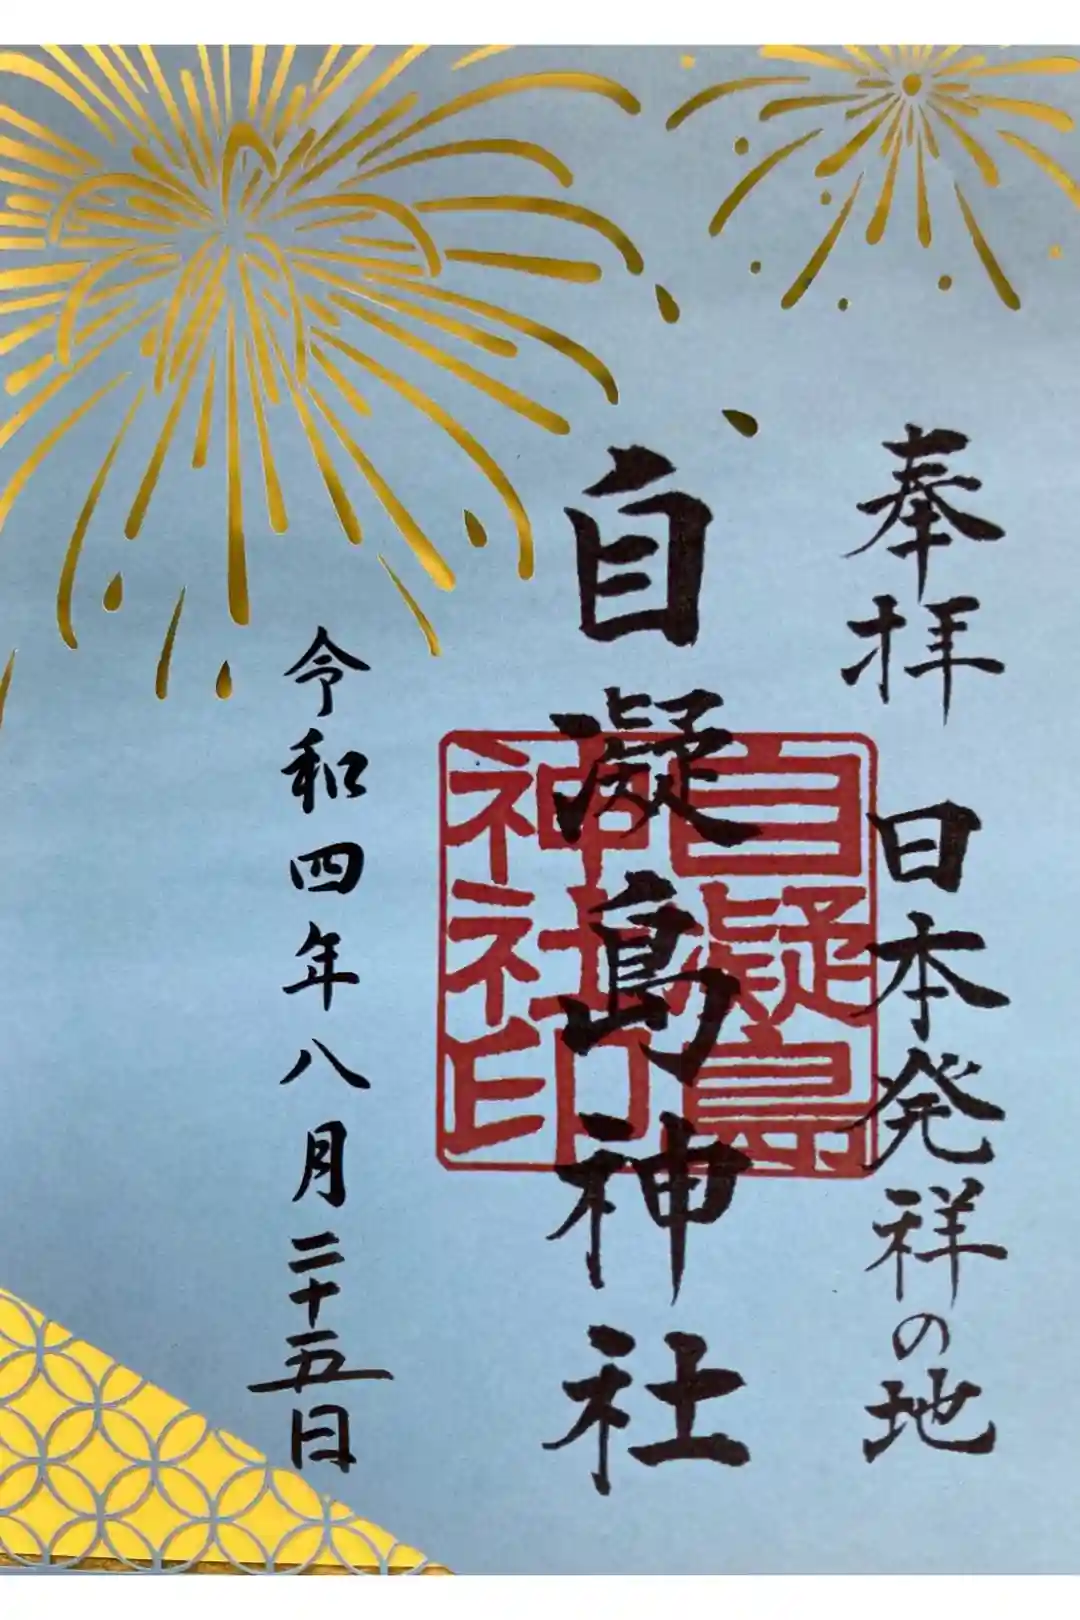 奉拝 日本発祥の地
自凝島神社
自凝島
神社印
令和四年八月二十五日